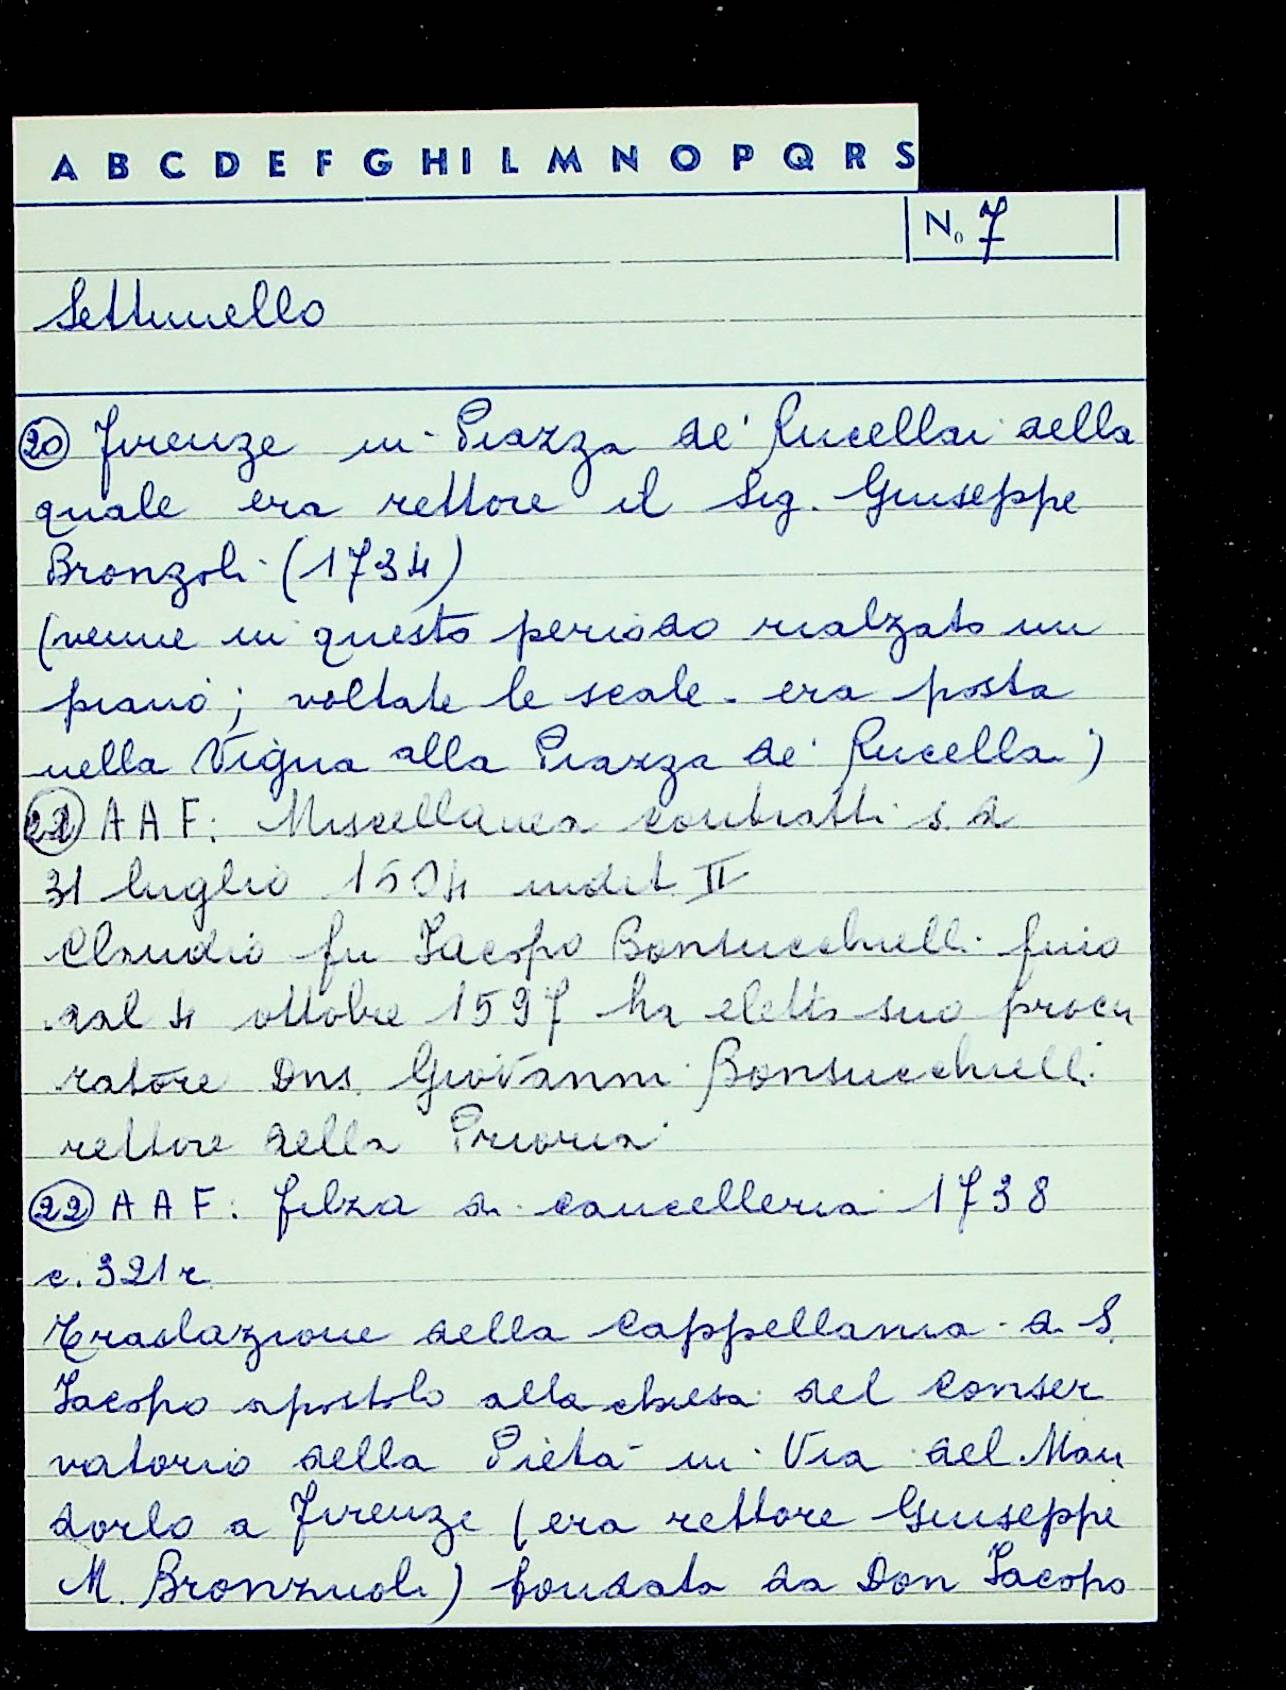 A B C D E F G H I L M N O P Q R S
No 7
Settimello
20 Firenze in Piazza de' Rucellai della
quale era rettore il Sig. Giuseppe
Bronzoli (1734)
(venne in questo periodo rialzato un
piano; voltate le scale - era posta
nella Vigna alla Piazza de' Rucellai)
21 AAF: Miscellanea contratti s.d
31 luglio 1504 indit. II
Claudio fu Jacopo Bonsucchielli fino
dal 4 ottobre 1597 ha eletto suo procu
ratore Dns. Giovanni Bonsucchielli
rettore della Prioria
22 AAF: filza di cancelleria 1738
c. 321r
Traslazione della Cappellania di S.
Jacopo apostolo alla chiesa del Conser
vatorio della Pietà in Via del Man
dorlo a Firenze (era rettore Giuseppe
M. Bronzuoli) fondata da Don Jacopo